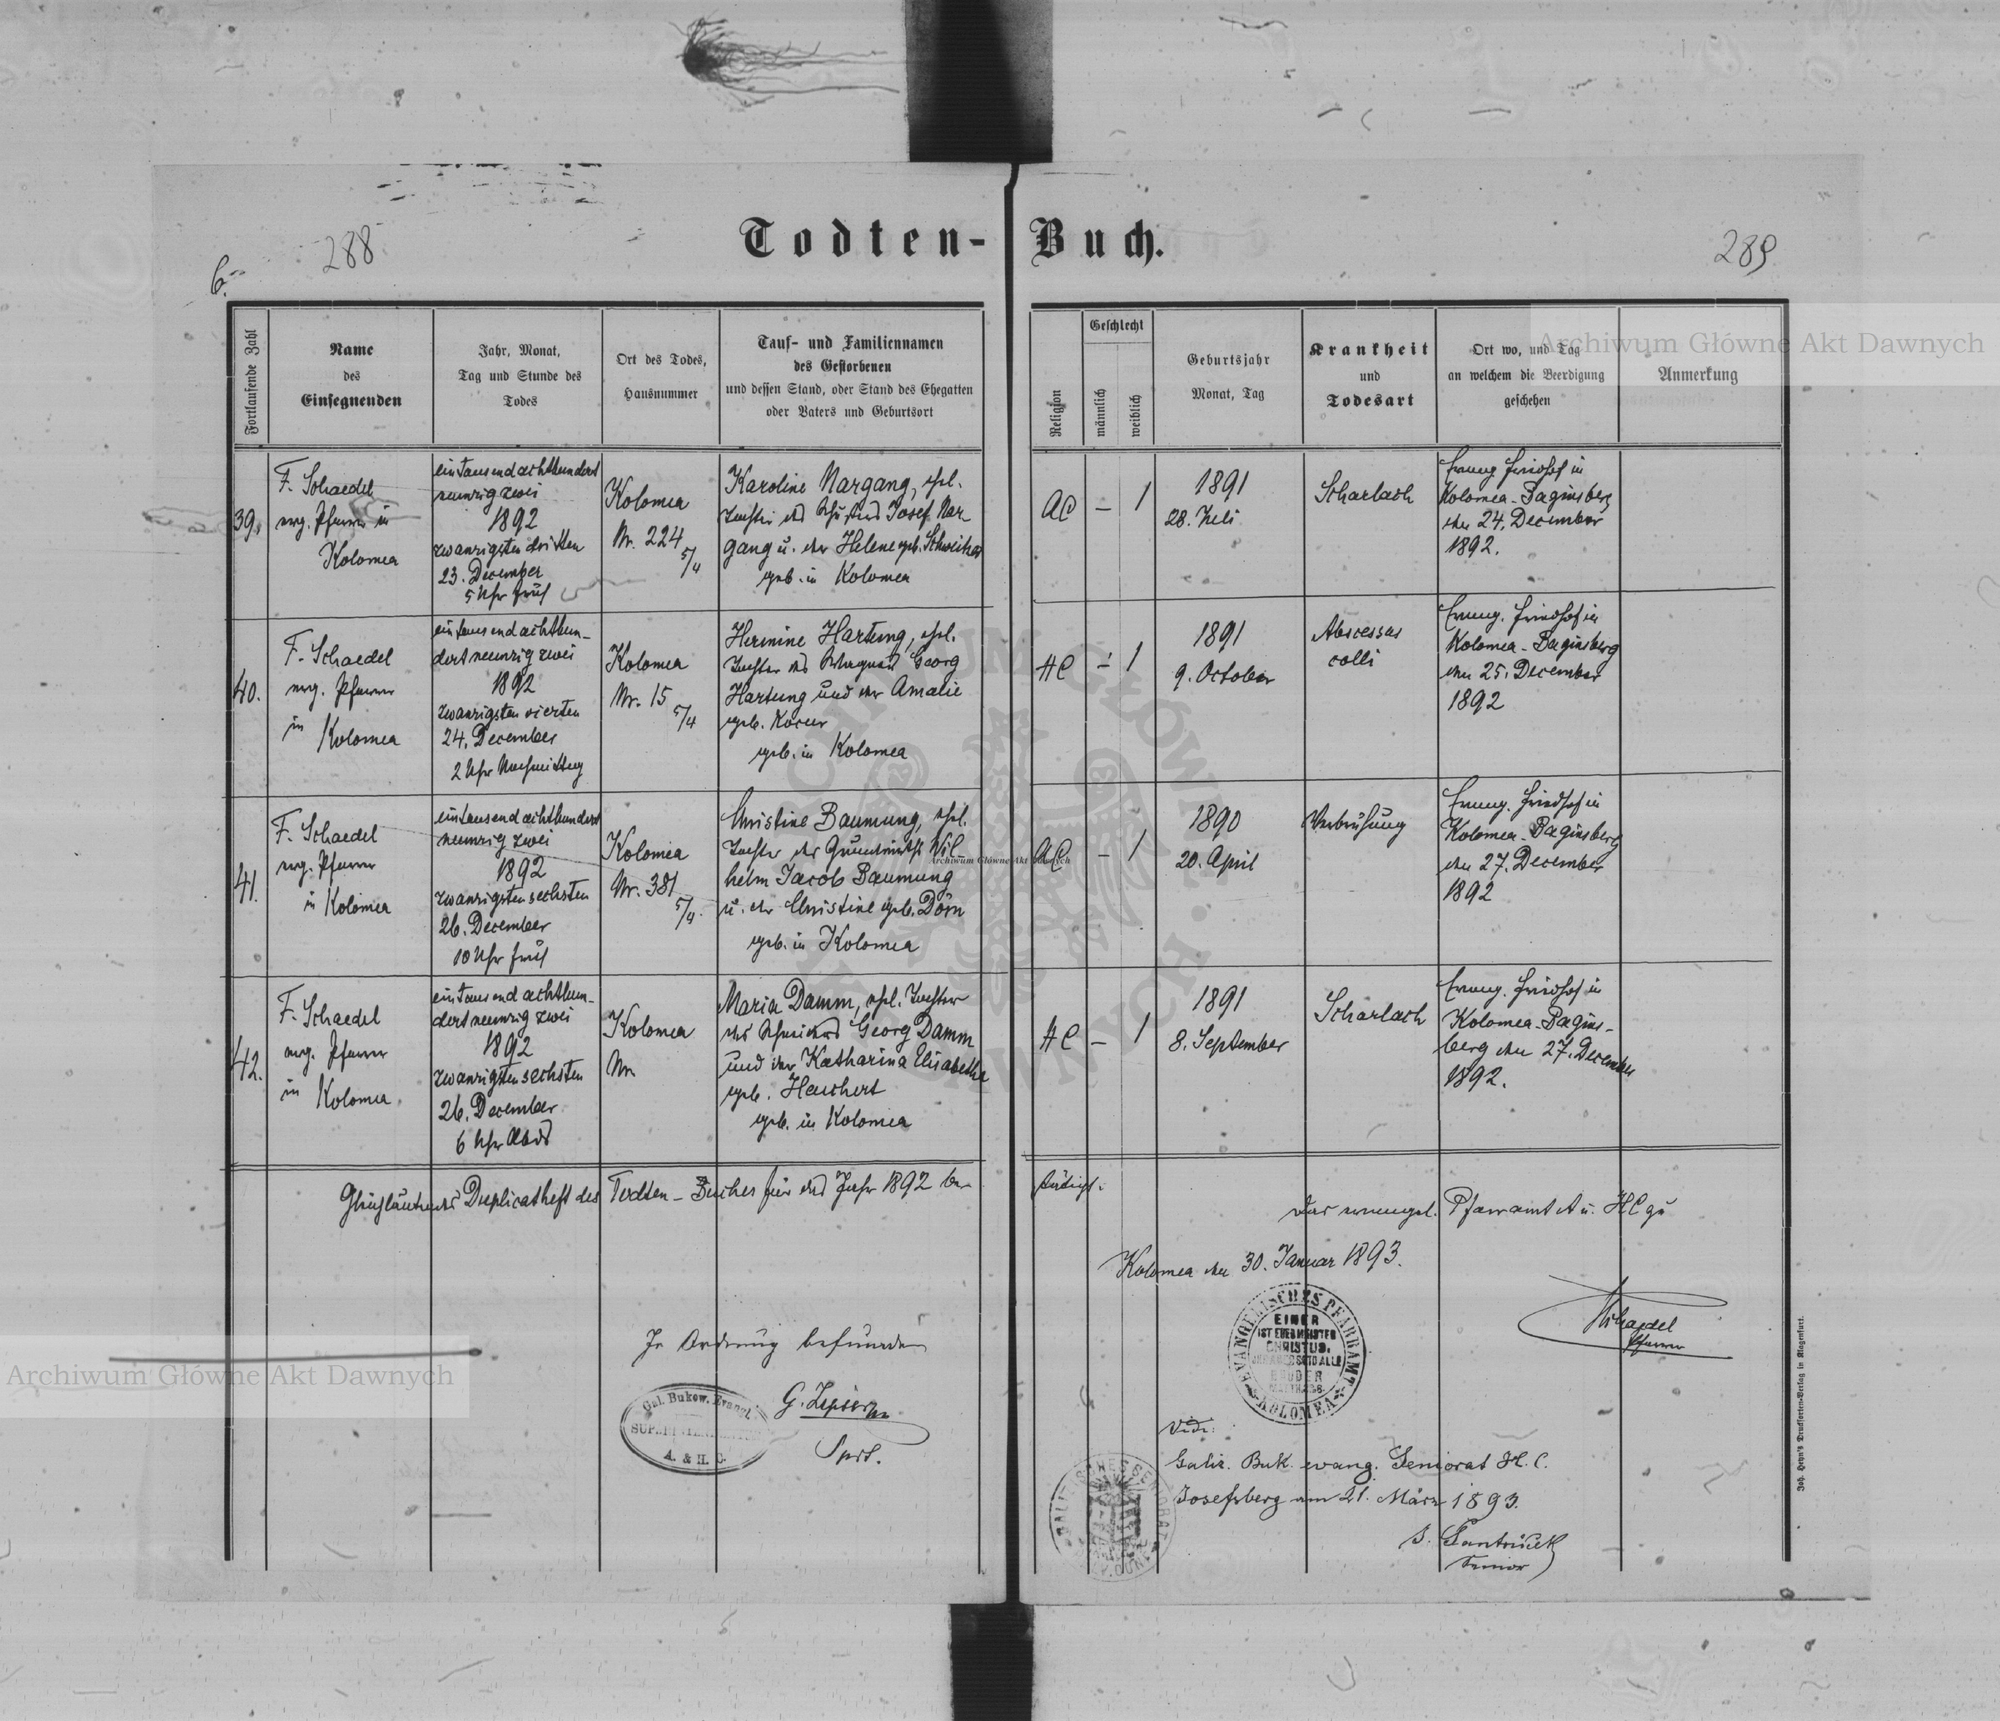 Todten-Buch.
6.
288
289
Archiwum Główne Akt Dawnych
Fortlaufende Zahl
Name
des
Einsegnenden
Jahr, Monat,
Tag und Stunde des
Todes
Ort des Todes,
Hausnummer
Tauf- und Familiennamen
des Gestorbenen
und dessen Stand, oder Stand des Ehegatten
oder Vaters und Geburtsort
Religion
Geschlecht
männlich
weiblich
Geburtsjahr
Monat, Tag
Krankheit
und
Todesart
Ort wo, und Tag
an welchem die Beerdigung
geschehen
Anmerkung
39.
F. Schaedel
evg. Pfarrer in
Kolomea
eintausendachthundert
neunzig zwei
1892
zwanzigsten dritten
23. December
5 Uhr früh
Kolomea
Nr. 224
5/4
Karoline Nargang, ehel.
Tochter des Josef Nar-
gang u. der Helene geb.
geb. in Kolomea
AC
–
1
1891
28. Juli
Scharlach
Evang. Friedhof in
Kolomea-Baginsberg
den 24. December
1892.
40.
F. Schaedel
evg. Pfarrer
in Kolomea
eintausend achthun-
dert neunzig zwei
1892
zwanzigsten vierten
24. December
2 Uhr Nachmittag
Kolomea
Nr. 15
5/4
Hermine Hartung, ehel.
Tochter des Georg
Hartung und der Amalie
geb. Kocur
geb. in Kolomea
HC
–
1
1891
9. October
Abscessus
colli
Evang. Friedhof in
Kolomea-Baginsberg
den 25. December
1892
41.
F. Schaedel
evg. Pfarrer
in Kolomea
eintausend achthundert
neunzig zwei
1892
zwanzigsten sechsten
26. December
10 Uhr früh
Kolomea
Nr. 381
5/4.
Christine Baumung, ehel.
Tochter des Grundwirths Wil-
helm Jacob Baumung
u. der Christine geb. Dörn
geb. in Kolomea
AC
–
1
1890
20. April
Verbrühung
Evang. Friedhof in
Kolomea-Baginsberg
den 27. December
1892
Archiwum Główne Akt Dawnych
42.
F. Schaedel
evg. Pfarrer
in Kolomea
eintausend achthun-
dert neunzig zwei
1892
zwanzigsten sechsten
26. December
6 Uhr Abds
Kolomea
Nr.
Maria Damm, ehel. Tochter
des Schneiders Georg Damm
und der Katharina Elisabetha
geb.
geb. in Kolomea
HC
–
1
1891
8. September
Scharlach
Evang. Friedhof in
Kolomea-Bagins-
berg den 27. December
1892.
Gleichlautendes Duplicatheft des Todten-Buches für das Jahr 1892 be-
stätigt.
Das evangel. Pfarramt A u. HC zu
Kolomea den 30. Januar 1893.
EVANGELISCHES PFARRAMT
KOLOMEA
EINER
IST EUER MEISTER
CHRISTUS,
BRÜDER
Schaedel
Pfarrer
In Ordnung befunden
Gal. Bukow. Evangl.
A. & H. C.
Vidi:
Galiz. Buk. evang. Seniorat H. C.
Josefsberg am 21. März 1893.
Senior
Archiwum Główne Akt Dawnych
Joh. Heyn's Drucksorten-Verlag in Klagenfurt.